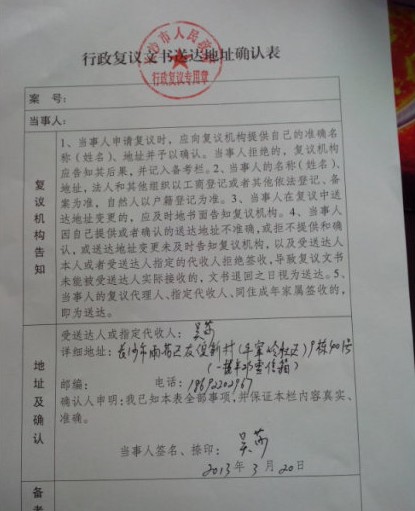 行政复议文书送达地址确认表
沙市人民政
行政复议专用章
案 号：
当事人：
复议机构告知
1、当事人申请复议时，应向复议机构提供自己的准确名
称（姓名）、地址并予以确认。当事人拒绝的，复议机构
应告知其后果，并记入备考栏。2、当事人的名称（姓名）、
地址，法人和其他组织以工商登记或者其他依法登记、备
案为准，自然人以户籍登记为准。3、当事人在复议中送
达地址变更的，应及时地书面告知复议机构。4、当事人
因自己提供或者确认的送达地址不准确，或拒不提供和确
认，或送达地址变更未及时告知复议机构，以及受送达人
本人或者受送达人指定的代收人拒绝签收，导致复议文书
未能被受送达人实际接收的，文书退回之日视为送达。5、
当事人的复议代理人、指定代收人、同住成年家属签收的，
即为送达。
地址及确认
受送达人或指定代收人：吴
详细地址：长沙市雨花区 新村 9栋
信箱）
邮编： 电话：
确认人申明：我已知本表全部事项，并保证本栏内容真实、
准确。
当事人签名、捺印：吴
2013年3月20日
备考